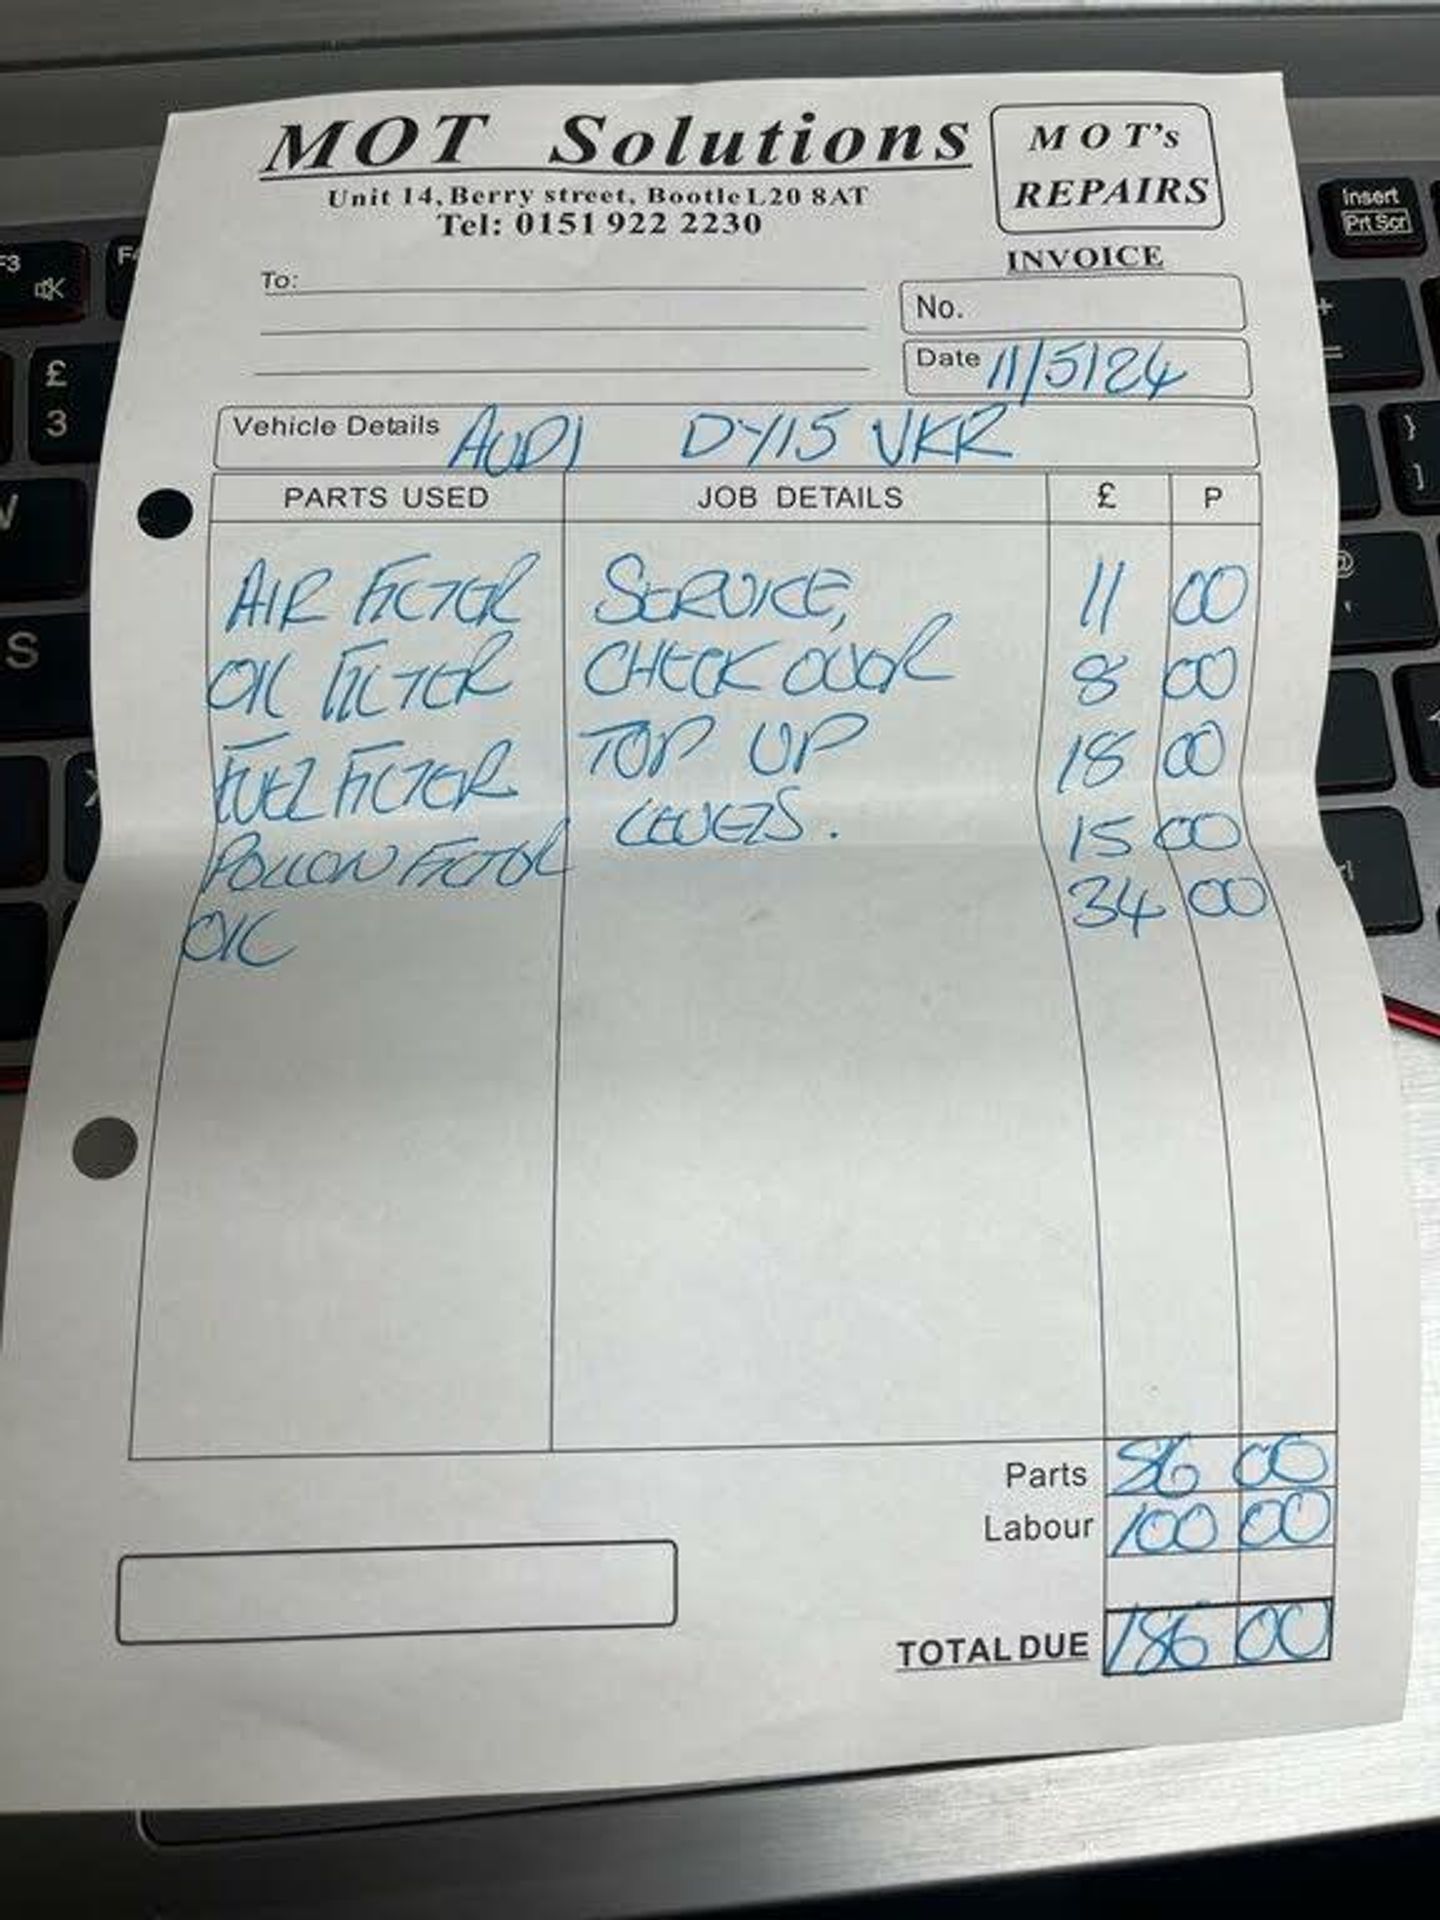 MOT Solutions
Unit 14, Berry street, Bootle L20 8AT
Tel: 0151 922 2230
MOT's
REPAIRS
INVOICE
To:
No.
Date 11/5/24
Vehicle Details AUDI DY15 VKR
PARTS USED JOB DETAILS £ P
AIR FILTER SERVICE, 11 00
OIL FILTER CHECK OVER 8 00
FUEL FILTER TOP UP 18 00
POLLON FILTER LEVELS. 15 00
OIL 34 00
Parts 86 00
Labour 100 00
TOTAL DUE 186 00
F3
£
3
S
Insert
Prt Scr
+
=
}
]
@
'